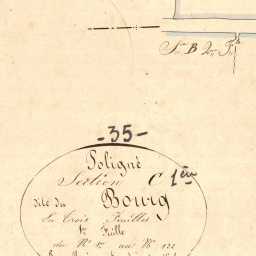 Son B 2e F.lle
-35-
Poligné
Section C 1ère
dite du Bourg
En Trois Feuilles
1re Feuille
du No 1er au No 122